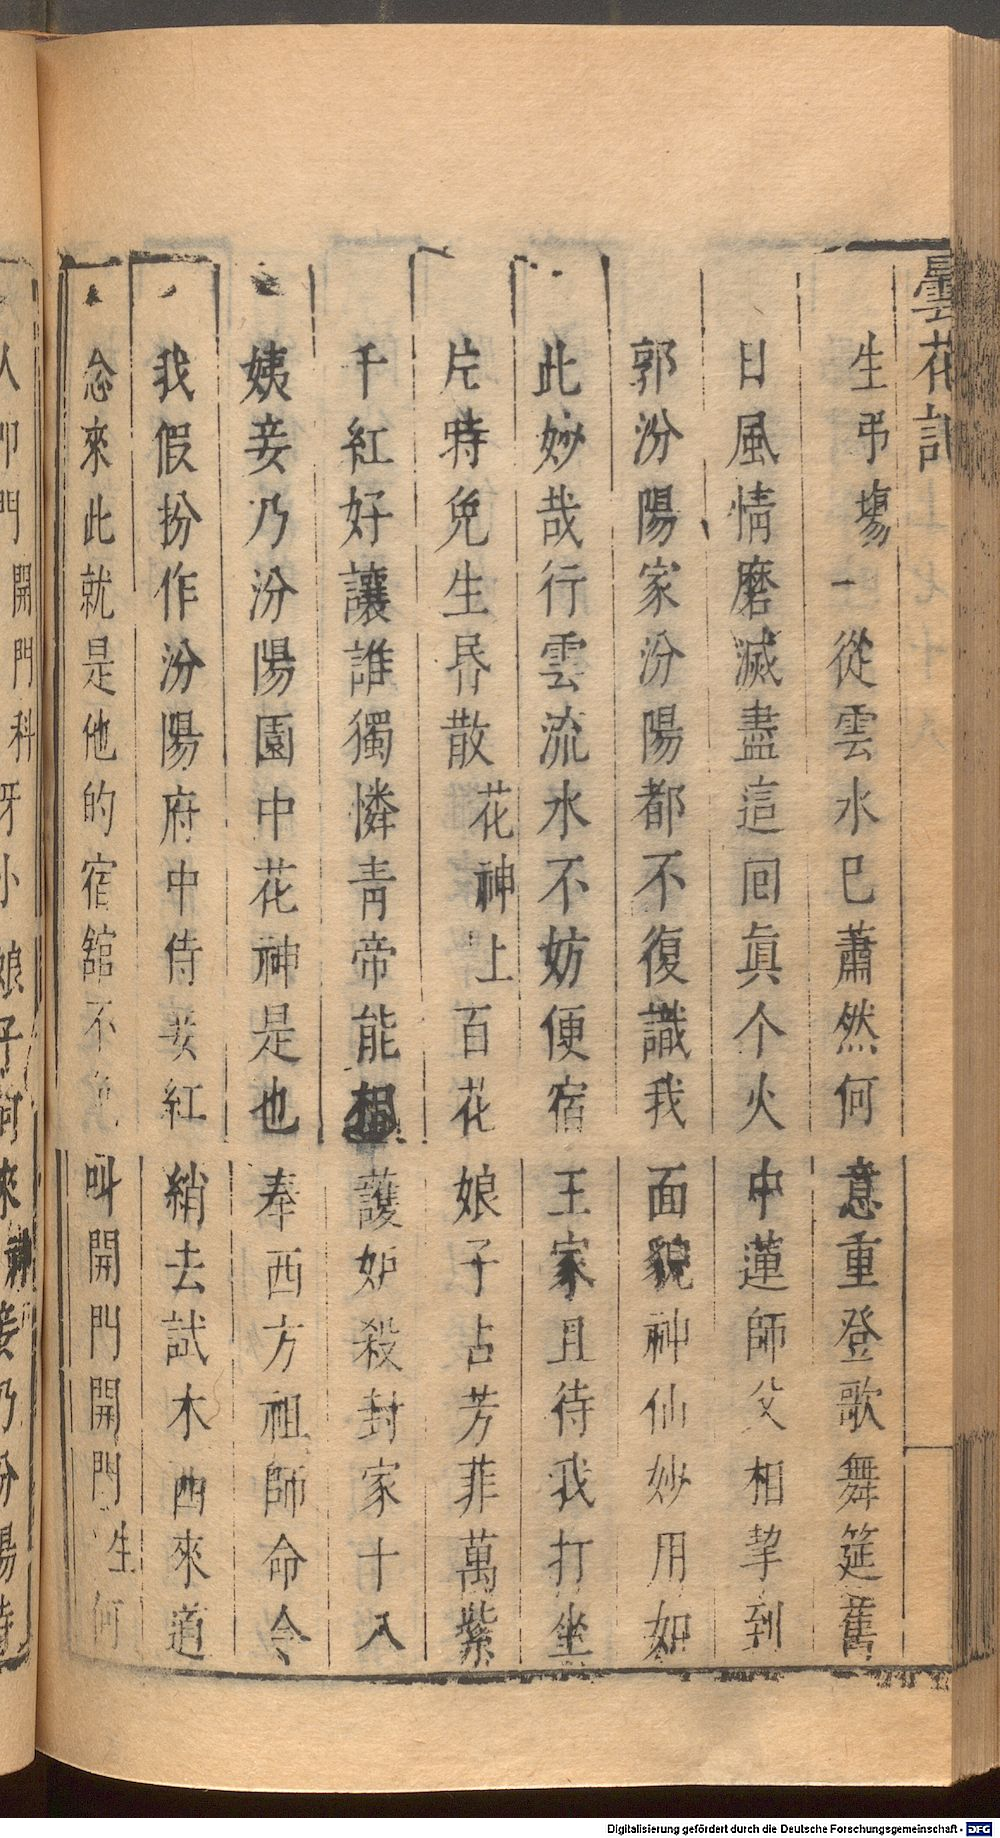 曇花記
生弔場一從雲水巳蕭然何意重登歌舞筵舊
日風情磨滅盡這回眞个火中蓮師父相挈到
郭汾陽家汾陽都不復識我面貌神仙妙用如
此妙哉行雲流水不妨便宿王家且待我打坐
片時免生昬散花神上百花娘子占芳菲萬紫
千紅好讓誰獨憐靑帝能相護妒殺封家十八
姨妾乃汾陽園中花神是也奉西方祖師命令
我假扮作汾陽府中侍妾紅綃去試木西來道
念來此就是他的宿舘不免叫開門開門生何
人叩門開門科呀小娘子何來神妾乃汾陽侍
Digitalisierung gefördert durch die Deutsche Forschungsgemeinschaft - DFG